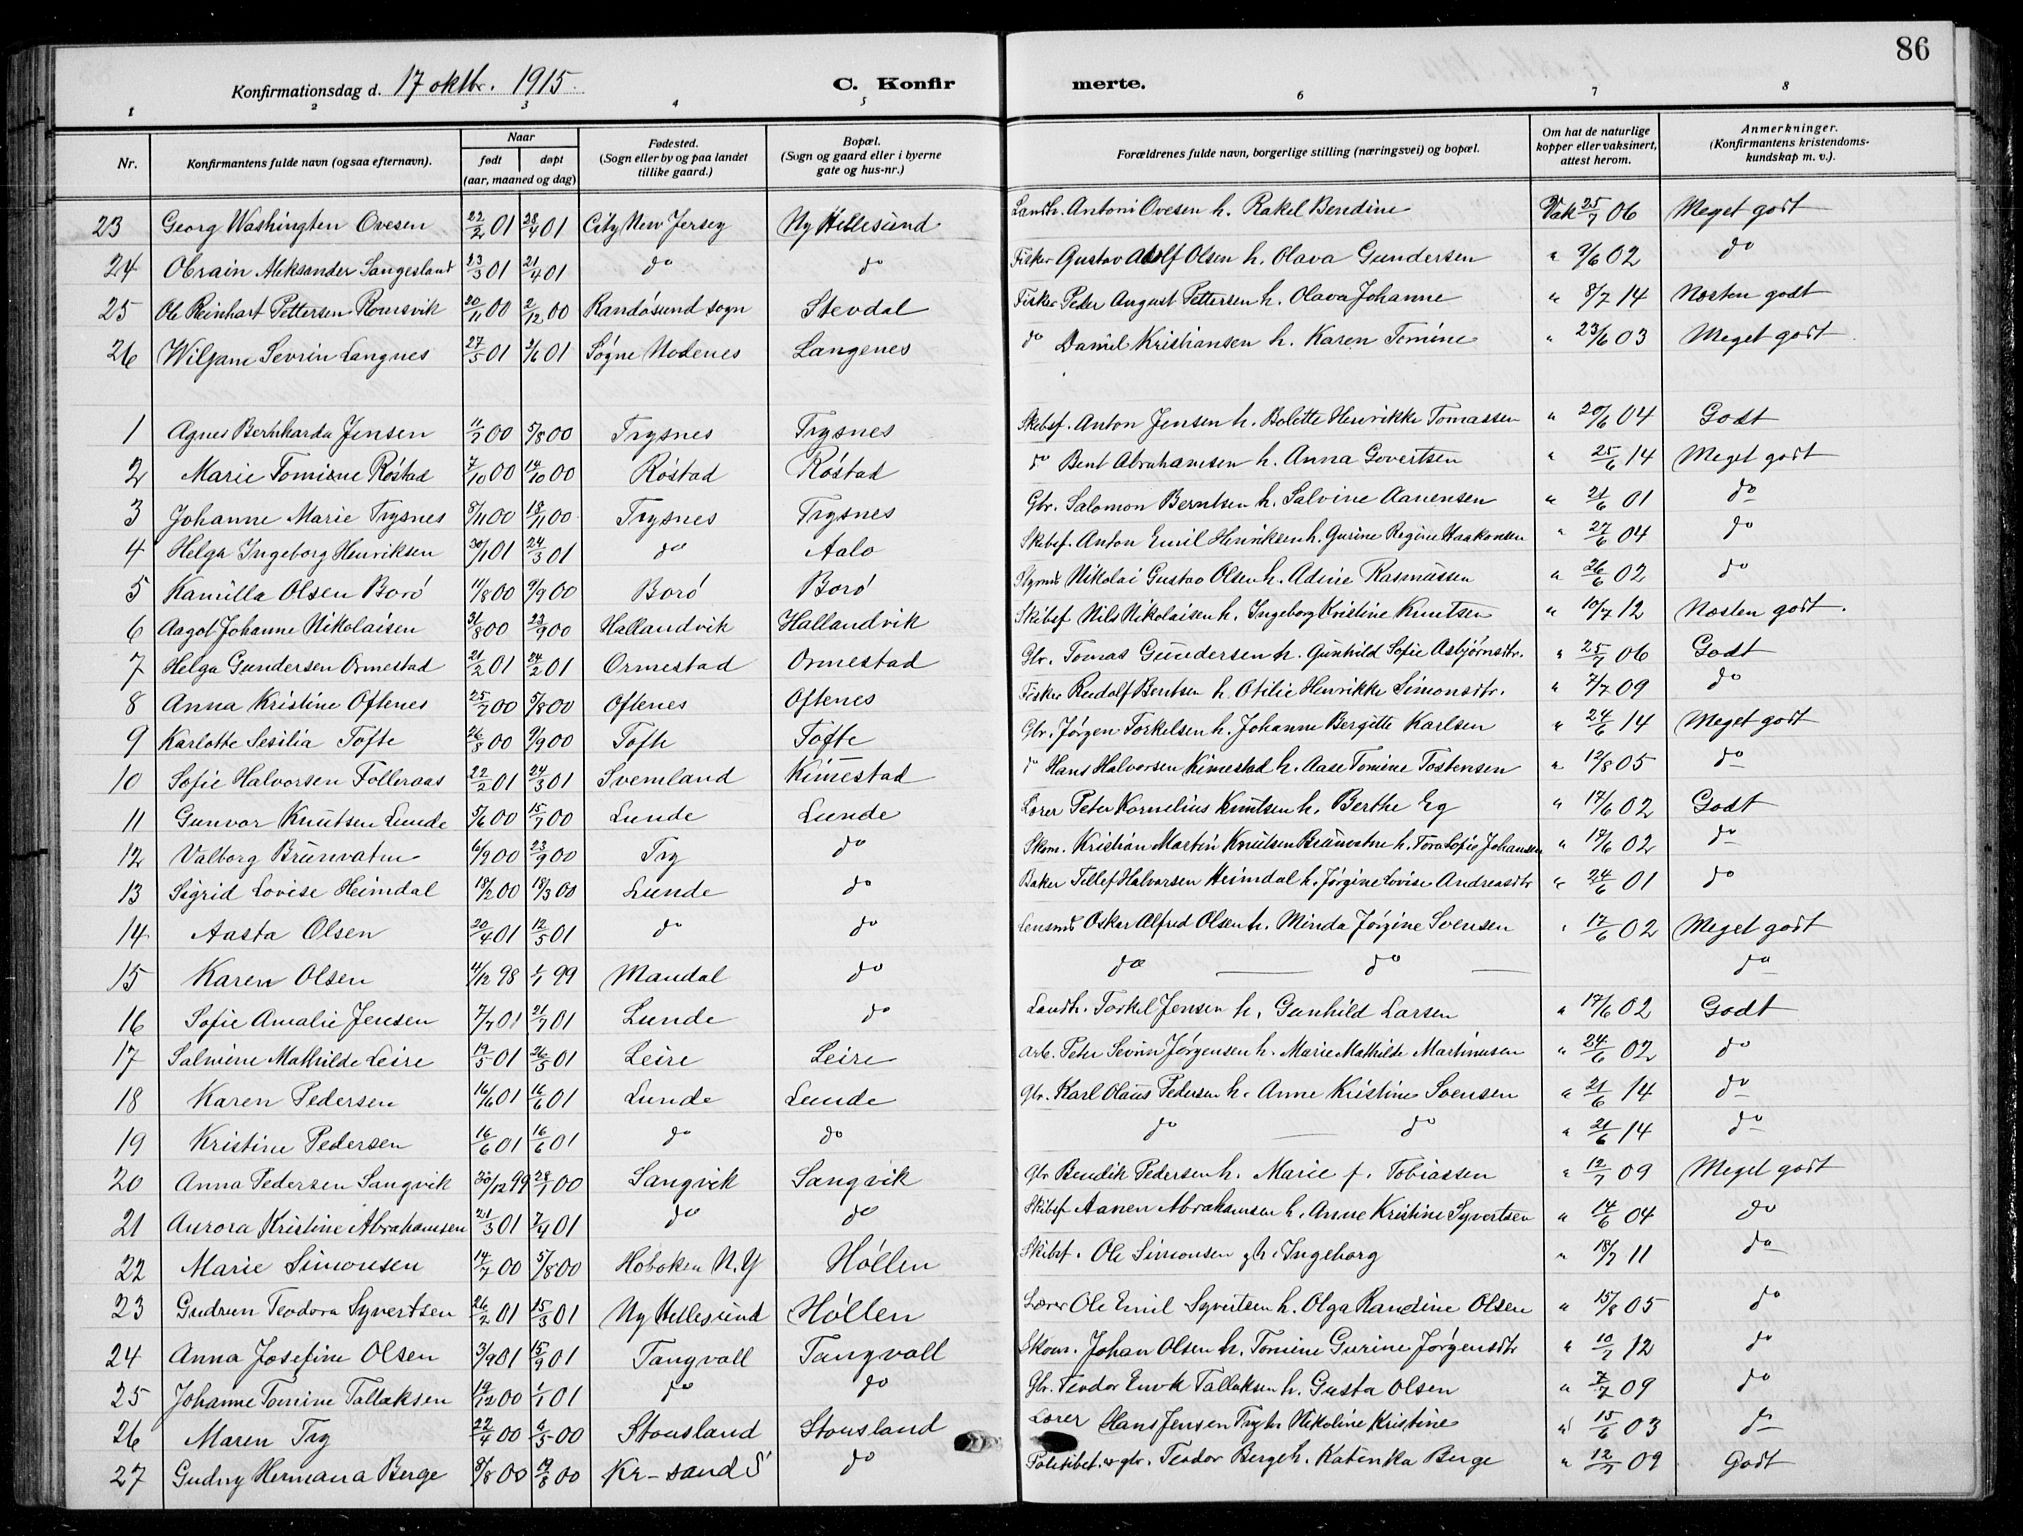 86
Konfirmationsdag d. 17 oktbr. 1915. C. Konfir merte.
1 2 3 4 5 6 7 8
Nr. Konfirmantens fulde navn (ogsaa efternavn). Naar født døpt (aar, maaned og dag) Fødested. (Sogn eller by og paa landet tillike gaard.) Bopæl. (Sogn og gaard eller i byerne gate og hus-nr.) Forældrenes fulde navn, borgerlige stilling (næringsvei) og bopæl. Om hat de naturlige kopper eller vaksinert, attest herom. Anmerkninger. (Konfirmantens kristendoms-kundskap m. v.).
23 Georg Washington Ovesen 22/2 01 28/4 01 City New Jersey Ny Hellesund Landh. Antoni Ovesen h. Rakel Bendine Vak 25/7 06 Meget godt
24 Obrain Aleksander Langesland 23/3 01 21/4 01 do do Fisker Gustav Adolf Olsen h. Olava Gundersen " 9/6 02 do
25 Ole Reinhart Pettersen Romsvik 20/11 00 2/12 00 Randøsund sogn Stevdal Fisker Peter August Pettersen h. Olava Johanne " 8/7 14 Næsten godt
26 Wiljam Sevrin Langnes 27/5 01 2/6 01 Søgne Nodenes Langenes do Daniel Kristiansen h. Karen Tomine " 23/6 03 Meget godt
1 Agnes Bernharda Jensen 11/7 00 5/8 00 Trysnes Trysnes Skibsf. Anton Jensen h. Bolette Henrikke Tomassen " 20/6 04 Godt
2 Marie Tomine Røstad 7/10 00 14/10 00 Røstad Røstad do Bent Abrahamsen h. Anna Govertsen " 25/6 14 Meget godt
3 Johanne Marie Trysnes 8/11 00 18/11 00 Trysnes Trysnes Gbr. Salomon Berntsen h. Salvine Aanensen " 21/6 01 do
4 Helga Ingeborg Henriksen 30/1 01 24/3 01 do Aalo Skibsf. Anton Emil Henriksen h. Gurine Regine Haakonsen " 27/6 04 do
5 Kamilla Olsen Borø 11/8 00 9/9 00 Borø Borø Styrmd Nikolai Gustav Olsen h. Adine Rasmussen " 26/6 02 do
6 Aagot Johanne Nikolaisen 31/8 00 23/9 00 Hallandvik Hallandvik Skibsf Nils Nikolaisen h. Ingeborg Kristine Knutsen " 10/7 12 Næsten godt.
7 Helga Gundersen Ormestad 21/2 01 24/2 01 Ormestad Ormestad Gbr. Tomas Gundersen h. Gunhild Sofie Asbjørnsdtr. " 25/7 06 Godt
8 Anna Kristine Oftenes 25/7 00 5/8 00 Oftenes Oftenes Fisker Rudolf Bentsen h. Otilie Henrikke Simonsdtr. " 7/7 09 do
9 Karlotte Sesilia Tofte 26/8 00 9/9 00 Tofte Tofte Gbr. Jørgen Torkelsen h. Johanne Bergitte Karlsen " 24/6 14 Meget godt
10 Sofie Halvorsen Folleraas 22/2 01 24/3 01 Svemland Kimestad do Hans Halvorsen Kimestad h. Aase Tomine Tostensen " 12/8 05 do
11 Gunvor Knutsen Lunde 5/6 00 15/7 00 Lunde Lunde Lærer Peter Kornelius Knutsen h. Berthe Eg " 17/6 02 Godt
12 Valborg Brunvatne 6/9 00 23/9 00 Try do Skom. Kristian Martin Knutsen Brunvatne h. Tora Sofie Johansen " 17/6 02 do
13 Sigrid Lovise Heimdal 18/2 00 18/3 00 Lunde do Baker Tellef Halvorsen Heimdal h. Jørgine Lovise Andreasdtr " 24/6 01 do
14 Aasta Olsen 20/4 01 12/5 01 do do Lensmd Oskar Alfred Olsen h. Minda Jørgine Svensen " 17/6 02 Meget godt
15 Karen Olsen 4/12 98 1/1 99 Mandal do do do do
16 Sofie Amalie Jensen 7/7 01 21/7 01 Lunde do Landh. Torkel Jensen h. Gunhild Larsen " 17/6 02 Godt
17 Salmine Mathilde Leire 19/5 01 26/5 01 Leire Leire Arb. Peter Sevrin Jørgensen h. Marie Mathilde Martinusen " 24/6 02 do
18 Karen Pedersen 16/6 01 16/6 01 Lunde Lunde Gbr. Karl Olaus Pedersen h. Anne Kristine Svensen " 21/6 14 do
19 Kristine Pedersen 16/6 01 16/6 01 do do do do " 21/6 14 do
20 Anna Pedersen Langvik 30/12 99 28/1 00 Langvik Langvik Gbr Bendik Pedersen h. Marie f. Tobiassen " 12/7 09 Meget godt
21 Aurora Kristine Abrahamsen 21/3 01 7/4 01 do do Skibsf Aanen Abrahamsen h. Anne Kristine Syvertsen " 14/6 04 do
22 Marie Simonsen 14/7 00 5/8 00 Hoboken N.Y Høllen Skibsf. Ole Simonsen h. Ingeborg " 18/7 11 do
23 Gudrun Teodora Syvertsen 26/2 01 15/3 01 Ny Hellesund Høllen Lærer Ole Emil Syvertsen h. Olga Randine Olsen " 15/8 05 do
24 Anna Josefine Olsen 3/9 01 15/9 01 Tangvall Tangvall Skom. Johan Olsen h. Tomine Gurine Jørgensdtr " 10/7 12 do
25 Johanne Tomine Tallaksen 19/12 00 1/1 01 do do Gbr. Teodor Emok Tallaksen h. Gusta Olsen " 7/7 09 do
26 Maren Try 22/4 00 6/5 00 Stousland Stousland Lærer Hans Jensen Try h. Nikoline Kristine " 15/6 03 do
27 Gudny Hermana Berge 8/8 00 19/8 00 Kr-sand S do Politibet. & gbr. Teodor Berge h. Katinka Berge " 12/7 09 Godt